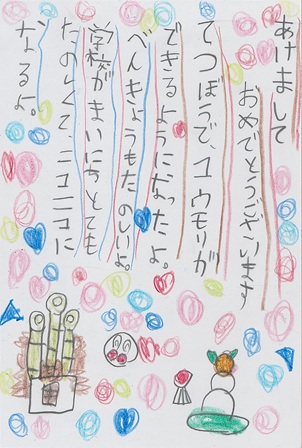 あけまして
おめでとうございます
てつぼうで、コウモリが
できるようになったよ。
べんきょうもたのしいよ。
学校がまいにちとても
たのしくて、ニコニコに
なるよ。